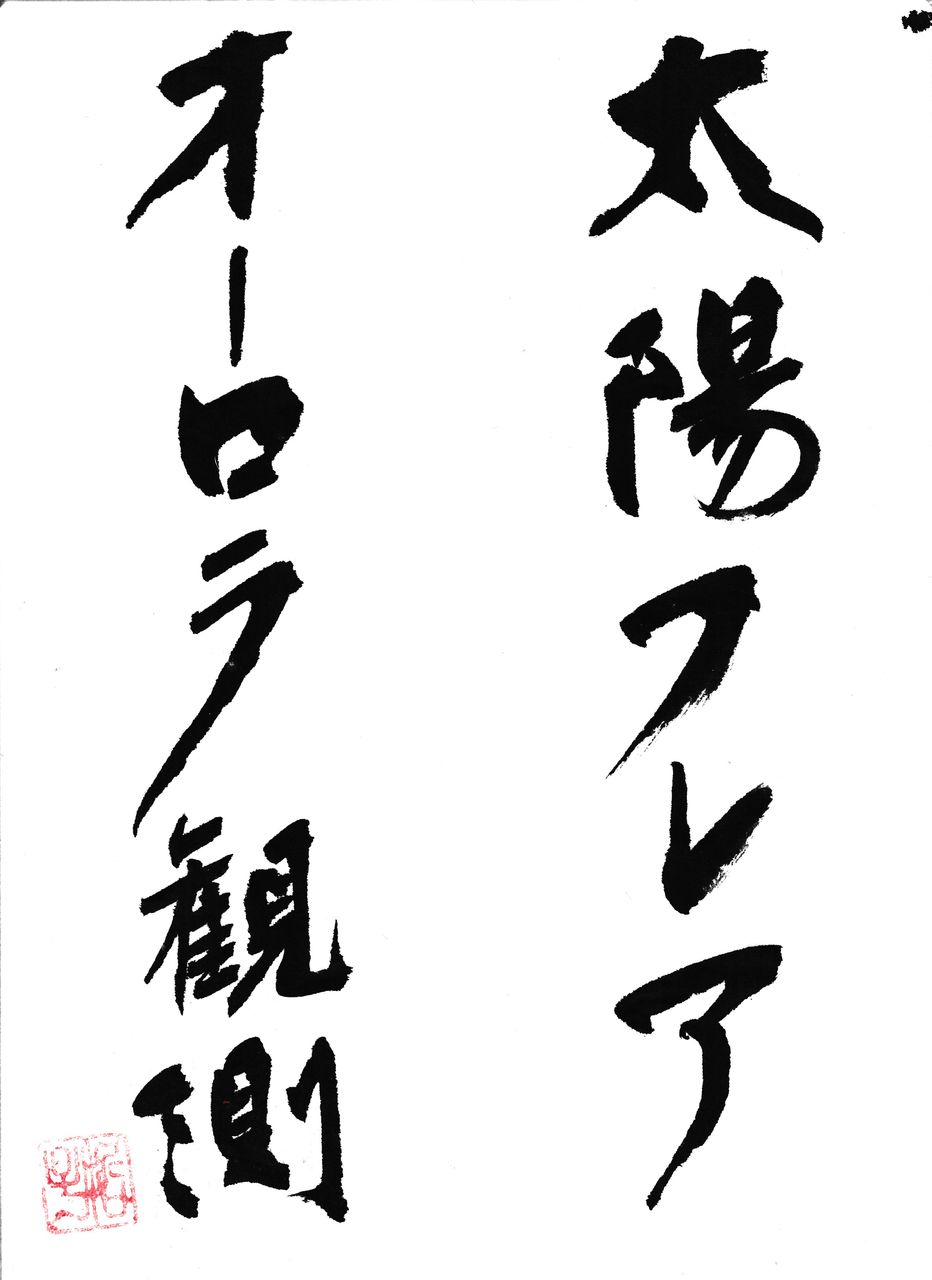 太陽フレア
オーロラ観測